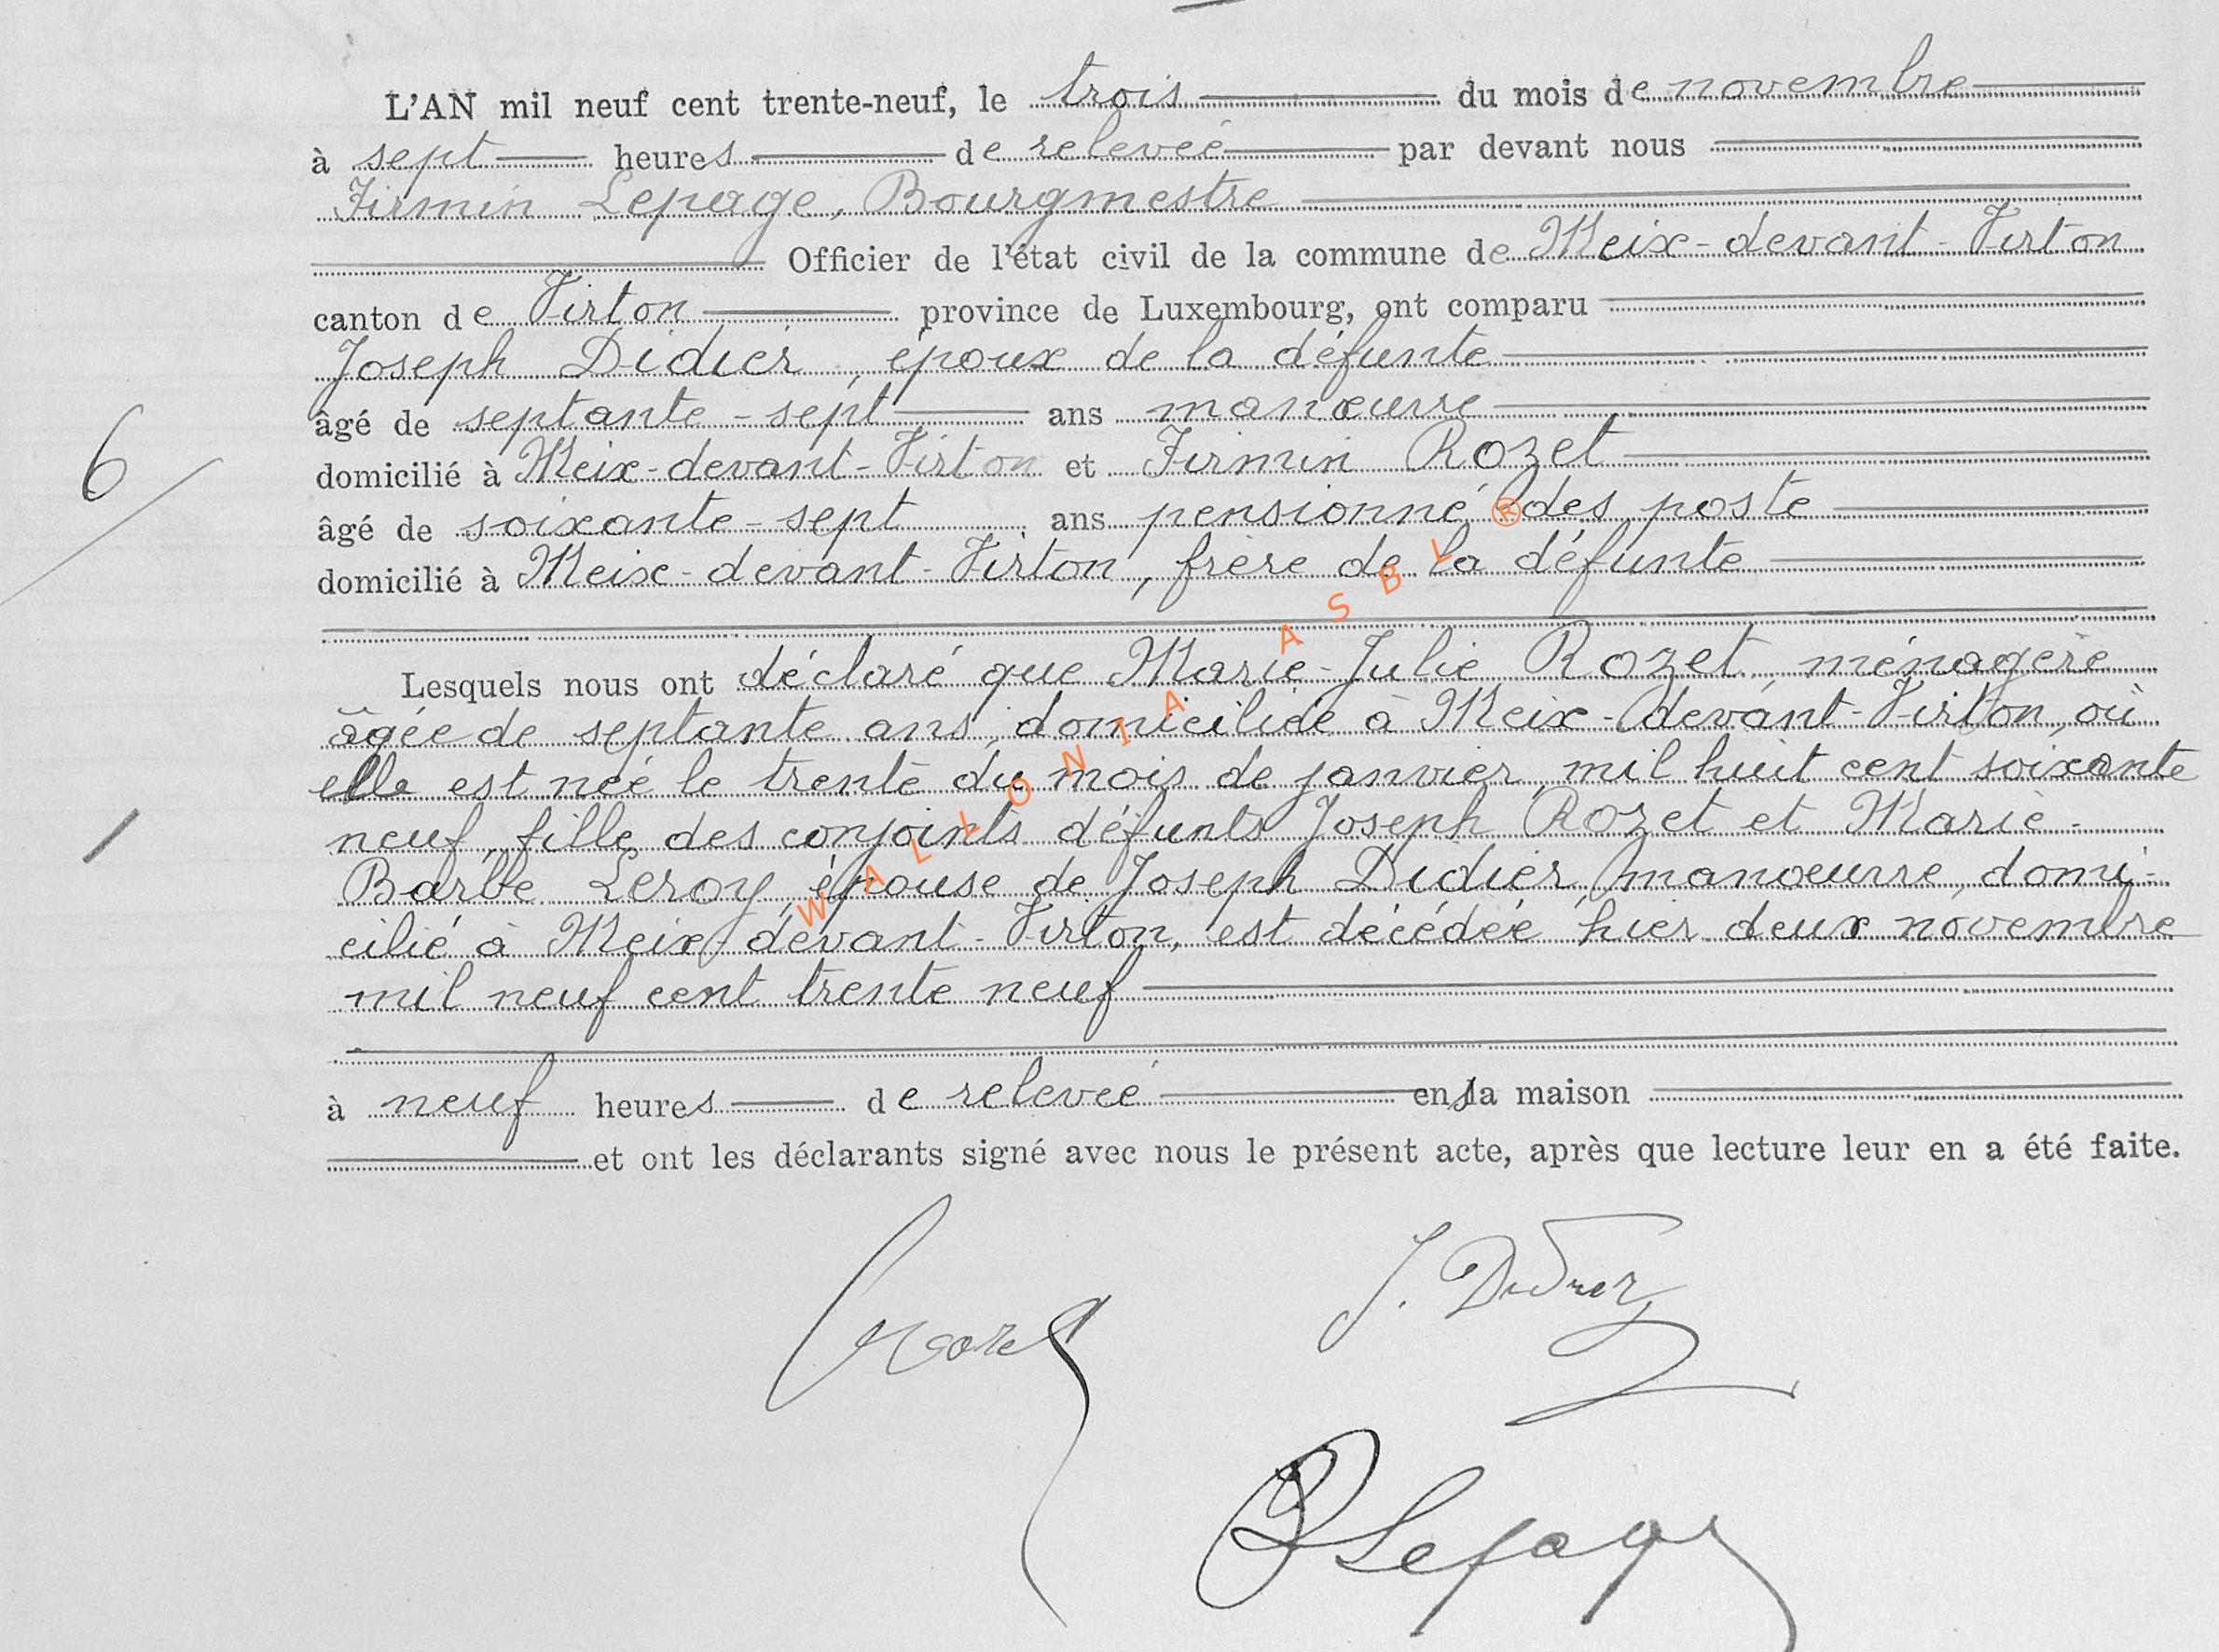 L'AN mil neuf cent trente-neuf, le trois du mois de novembre
à sept heures de relevée par devant nous
Firmin Lepage, Bourgmestre
Officier de l'état civil de la commune de Meix-devant-Virton
canton de Virton province de Luxembourg, ont comparu
Joseph Didier, époux de la défunte
âgé de septante-sept ans manœuvre
domicilié à Meix-devant-Virton et Firmin Rozet
6
âgé de soixante-sept ans pensionné des poste
domicilié à Meix-devant-Virton, frère de la défunte
Lesquels nous ont déclaré que Marie-Julie Rozet, ménagère
âgée de septante ans, domiciliée à Meix-devant-Virton, où
elle est née le trente du mois de janvier mil huit cent soixante
neuf, fille des conjoints défunts Joseph Rozet et Marie-
Barbe Leroy, épouse de Joseph Didier, manœuvre, domi-
cilié à Meix-devant-Virton, est décédée hier deux novembre
mil neuf cent trente neuf
à neuf heures de relevée en sa maison
et ont les déclarants signé avec nous le présent acte, après que lecture leur en a été faite.
Rozet J. Didier
Lepage
WALLONIA ASBL ®